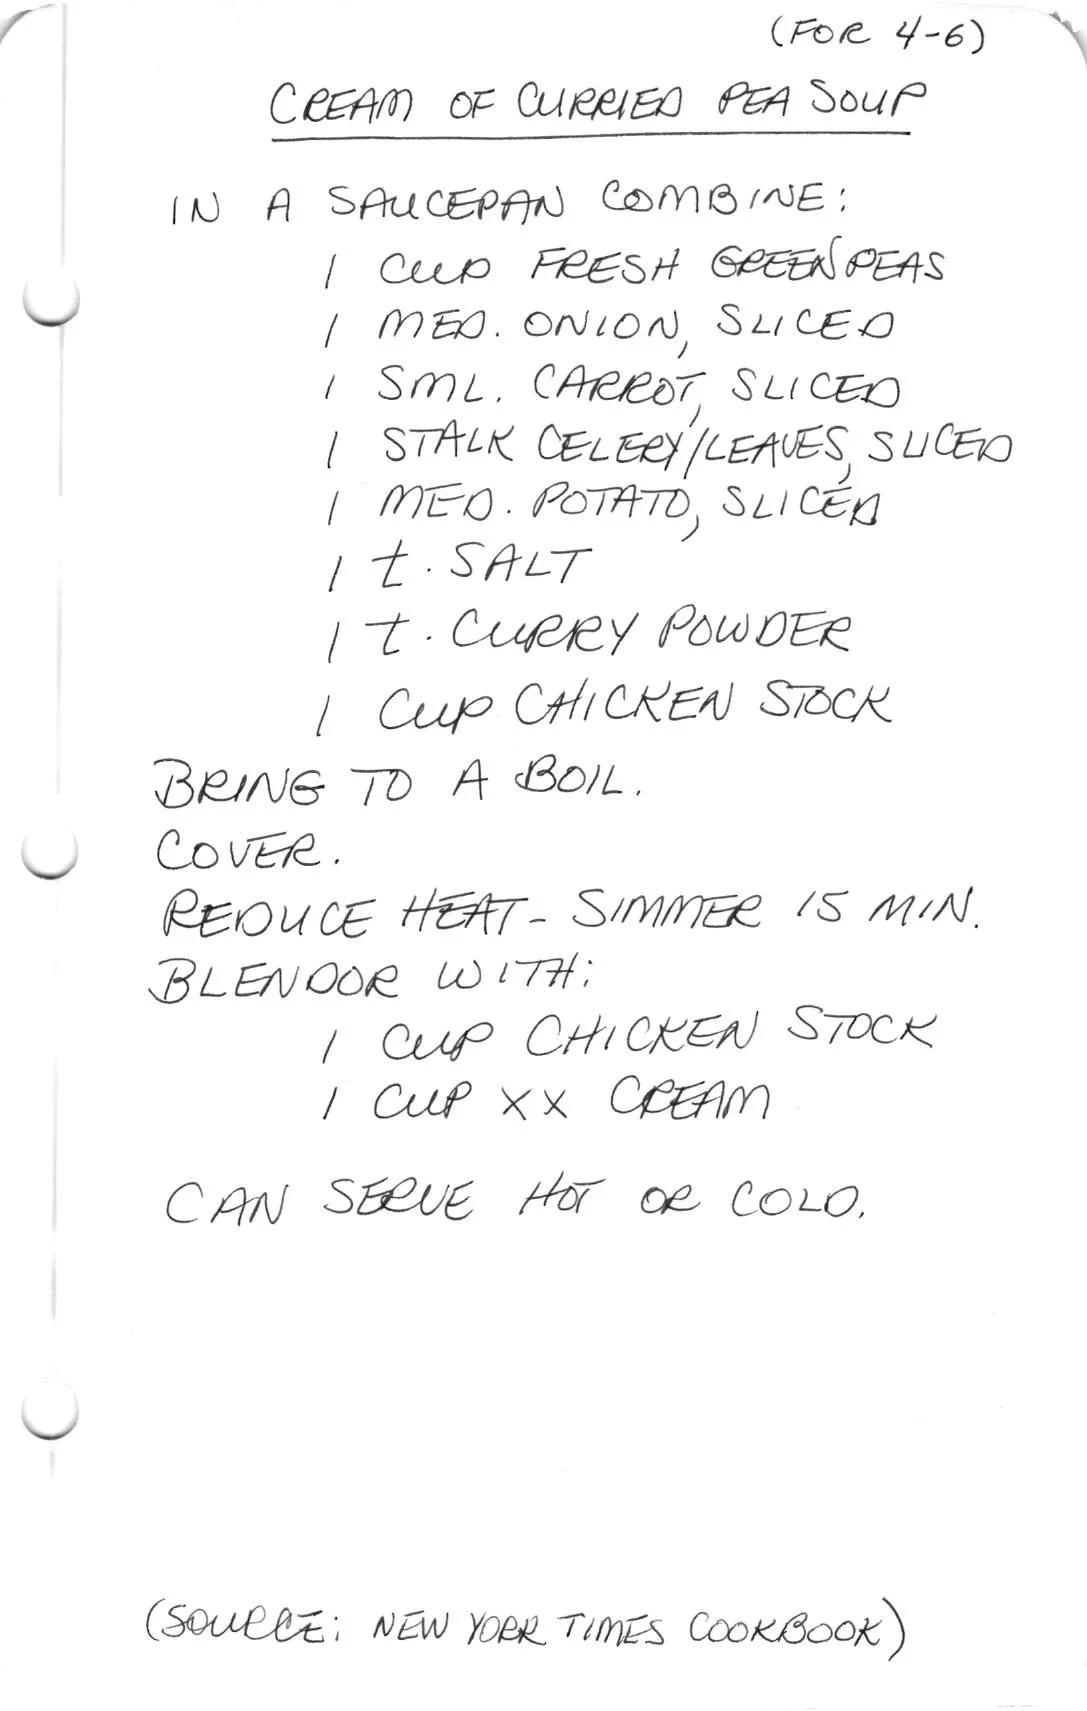 (FOR 4-6)
CREAM OF CURRIED PEA SOUP
IN A SAUCEPAN COMBINE:
1 CUP FRESH GREEN PEAS
1 MED. ONION, SLICED
1 SML. CARROT, SLICED
1 STALK CELERY/LEAVES, SLICED
1 MED. POTATO, SLICED
1 t. SALT
1 t. CURRY POWDER
1 CUP CHICKEN STOCK
BRING TO A BOIL.
COVER.
REDUCE HEAT - SIMMER 15 MIN.
BLENDOR WITH:
1 CUP CHICKEN STOCK
1 CUP XX CREAM
CAN SERVE HOT OR COLD.
(SOURCE: NEW YORK TIMES COOKBOOK)